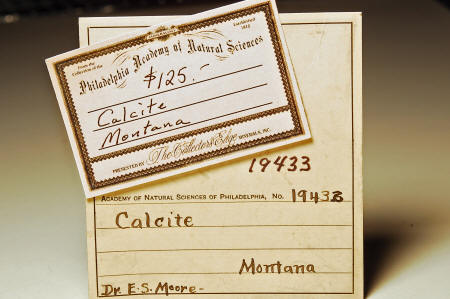 From the
Collection of the
Established
1812
Philadelphia Academy of Natural Sciences
$125.-
Calcite
Montana
PRESENTED BY The Collector's Edge MINERALS, INC.
19433
ACADEMY OF NATURAL SCIENCES OF PHILADELPHIA, No. 19433
Calcite
Montana
Dr. E.S. Moore-